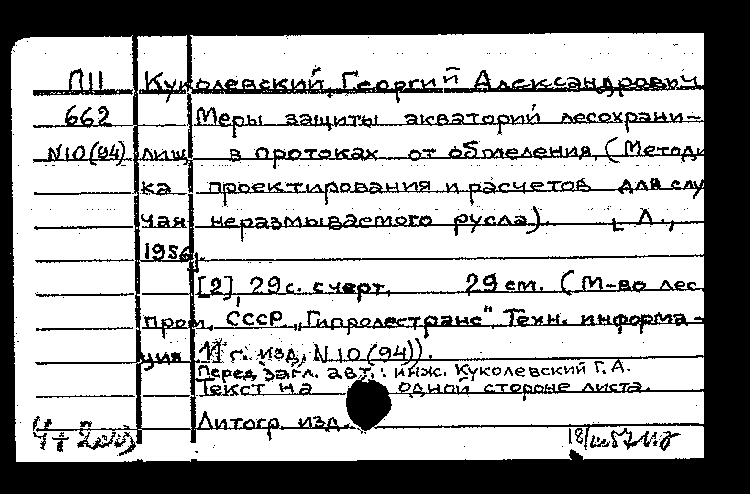 П11 Куколевский, Георгий Александрович
662 Меры защиты акваторий лесохрани-
N10(94) лищ в протоках от обмеления. (Методи
ка проектирования и расчетов для слу
чая неразмываемого русла). Л.,
1956.
[2], 29 с. с черт. 29 см. (М-во лес.
пром. СССР. „Гипролестранс". Техн. информа-
ция г. изд. N10(94)).
Перед загл. авт.: инж. Куколевский Г.А.
Текст на одной стороне листа.
Литогр. изд.